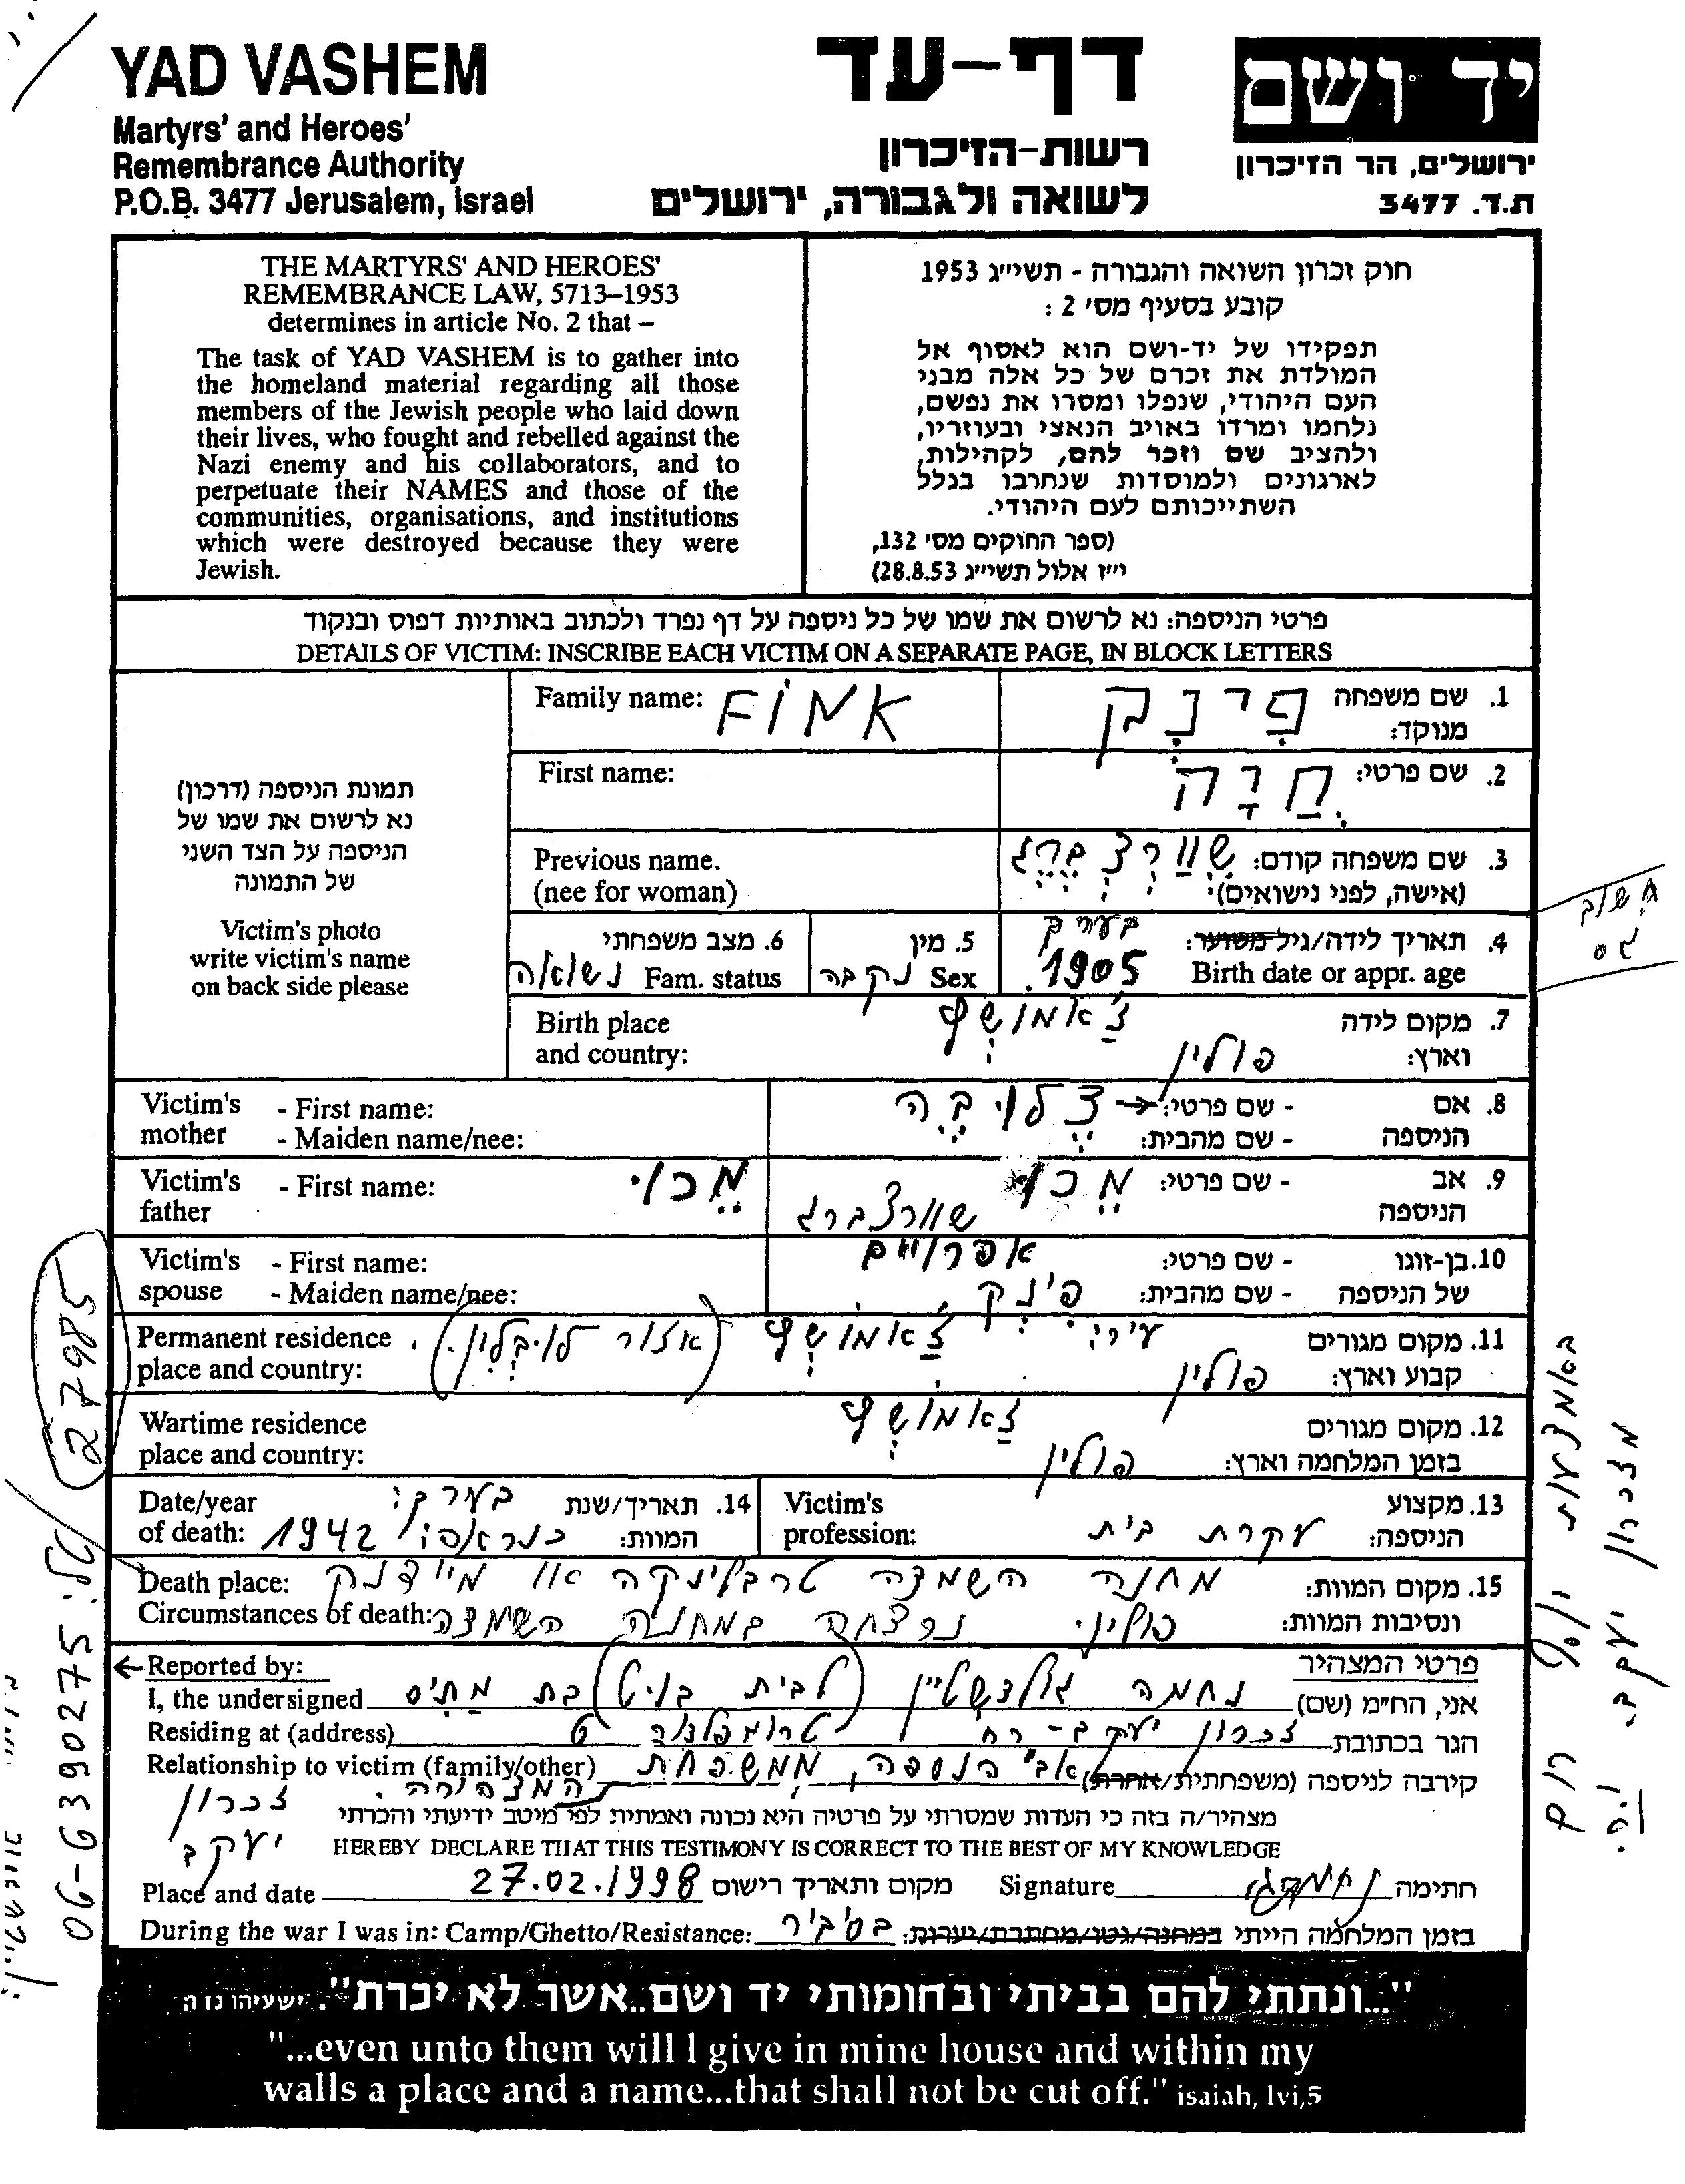 YAD VASHEM
Martyrs' and Heroes'
Remembrance Authority
P.O.B. 3477 Jerusalem, Israel
דף-עד
רשות-הזיכרון
לשואה ולגבורה, ירושלים
יד ושם
ירושלים, הר הזיכרון
ת.ד. 3477
THE MARTYRS' AND HEROES'
REMEMBRANCE LAW, 5713–1953
determines in article No. 2 that –
The task of YAD VASHEM is to gather into
the homeland material regarding all those
members of the Jewish people who laid down
their lives, who fought and rebelled against the
Nazi enemy and his collaborators, and to
perpetuate their NAMES and those of the
communities, organisations, and institutions
which were destroyed because they were
Jewish.
חוק זכרון השואה והגבורה - תשי״ג 1953
קובע בסעיף מס׳ 2 :
תפקידו של יד-ושם הוא לאסוף אל
המולדת את זכרם של כל אלה מבני
העם היהודי, שנפלו ומסרו את נפשם,
נלחמו ומרדו באויב הנאצי ובעוזריו,
ולהציב שם וזכר להם, לקהילות,
לארגונים ולמוסדות שנחרבו בגלל
השתייכותם לעם היהודי.
(ספר החוקים מס׳ 132,
י״ז אלול תשי״ג 28.8.53)
פרטי הניספה: נא לרשום את שמו של כל ניספה על דף נפרד ולכתוב באותיות דפוס ובנקוד
DETAILS OF VICTIM: INSCRIBE EACH VICTIM ON A SEPARATE PAGE, IN BLOCK LETTERS
תמונת הניספה (דרכון)
נא לרשום את שמו של
הניספה על הצד השני
של התמונה
Victim's photo
write victim's name
on back side please
Family name: FiNK
1. שם משפחה פִינְק
מנוקד:
First name:
2. שם פרטי: חַדָה
Previous name.
(nee for woman)
3. שם משפחה קודם: שְוַורְצְבֶּרְג
(אישה, לפני נישואים):
4. תאריך לידה/גיל משוער: בערך
Birth date or appr. age 1905
5. מין
Sex נקבה
6. מצב משפחתי
Fam. status נשואה
Birth place
and country:
7. מקום לידה זַ'אמושְץ
וארץ: פולין
Victim's - First name:
mother - Maiden name/nee:
8. אם - שם פרטי:
הניספה - שם מהבית:
Victim's - First name: מֶכוּ.
father
9. אב - שם פרטי: מֶכו
הניספה שוורצברג
Victim's - First name:
spouse - Maiden name/nee:
10. בן-זוגו - שם פרטי: אפרויים
של הניספה - שם מהבית: פינק
Permanent residence
place and country:
11. מקום מגורים עיר: זַ'אמושְץ (אזור לובלין).
קבוע וארץ: פולין
Wartime residence
place and country:
12. מקום מגורים זַ'אמושְץ
בזמן המלחמה וארץ: פולין
Date/year
of death: 1942
14. תאריך/שנת בערך:
המוות: כנראה:
Victim's
profession:
13. מקצוע
הניספה: עקרת בית
Death place:
Circumstances of death:
15. מקום המוות: מחנה השמדה טרבלינקה או מיידנק
ונסיבות המוות: פולין. נרצחה במחנה השמדה
Reported by:
פרטי המצהיר
I, the undersigned
אני, הח״מ (שם) נחמה גולדשטיין (לבית בוים) בת
Residing at (address)
הגר בכתובת זכרון יעקב - רח טרומפלדור 6
Relationship to victim (family/other)
קירבה לניספה (משפחתית/אחרת) הנספה, ממשפחת
המצהירה.
מצהיר/ה בזה כי העדות שמסרתי על פרטיה היא נכונה ואמתית לפי מיטב ידיעתי והכרתי
HEREBY DECLARE THAT THIS TESTIMONY IS CORRECT TO THE BEST OF MY KNOWLEDGE
זכרון
יעקב
Place and date 27.02.1998 מקום ותאריך רישום
Signature חתימה
During the war I was in: Camp/Ghetto/Resistance:
בזמן המלחמה הייתי במחנה/גטו/מחתרת/יערות: בסיביר
"...ונתתי להם בביתי ובחומותי יד ושם..אשר לא יכרת". ישעיהו נו ה
"...even unto them will I give in mine house and within my
walls a place and a name...that shall not be cut off." isaiah, lvi,5
27985
טל: 06-6390275
באמצעות יוסף רום
מזכרון יעקב.